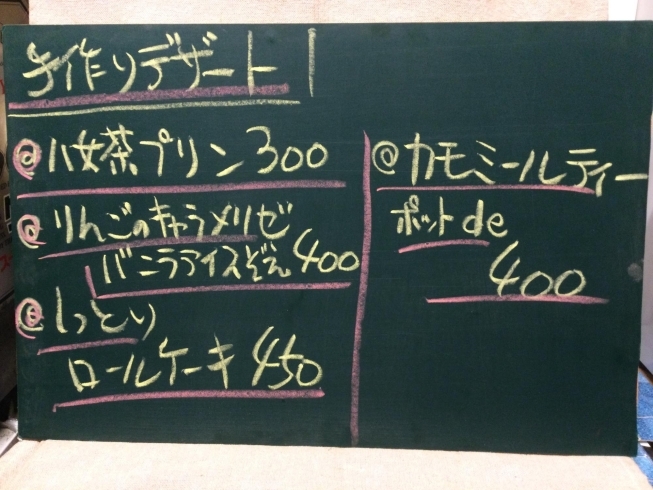 手作りデザート！
@八女茶プリン 300
@りんごのキャラメリゼ
バニラアイスぞえ 400
@しっとり
ロールケーキ 450
@カモミールティー
ポットde
400